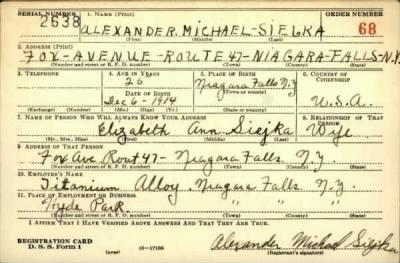 SERIAL NUMBER 1. NAME (Print) ORDER NUMBER
2638 ALEXANDER MICHAEL-SIEJKA 68
(First) (Middle) (Last)
2. ADDRESS (Print)
FOX-AVENUE-ROUTE 47-NIAGARA-FALLS-N.Y.
(Number and street or R. F. D. number) (Town) (County) (State)
3. TELEPHONE 4. AGE IN YEARS 5. PLACE OF BIRTH 6. COUNTRY OF CITIZENSHIP
26 Niagara Falls N.Y.
(Town or county)
DATE OF BIRTH
Dec 6-1914 U.S.A.
(Exchange) (Number) (Mo.) (Day) (Yr.) (State or country)
7. NAME OF PERSON WHO WILL ALWAYS KNOW YOUR ADDRESS 8. RELATIONSHIP OF THAT PERSON
Elizabeth Ann Siejka Wife
(Mr., Mrs., Miss) (First) (Middle) (Last)
9. ADDRESS OF THAT PERSON
Fox Ave. Rout 47- Niagara Falls. N.Y.
(Number and street or R. F. D. number) (Town) (County) (State)
10. EMPLOYER'S NAME
Titanium Alloy. Niagara Falls N.Y.
11. PLACE OF EMPLOYMENT OR BUSINESS
Hyde Park. " " " "
(Number and street or R. F. D. number) (Town) (County) (State)
I AFFIRM THAT I HAVE VERIFIED ABOVE ANSWERS AND THAT THEY ARE TRUE.
REGISTRATION CARD
D. S. S. Form 1 (over) 16-17105 Alexander Michael Siejka
(Registrant's signature)